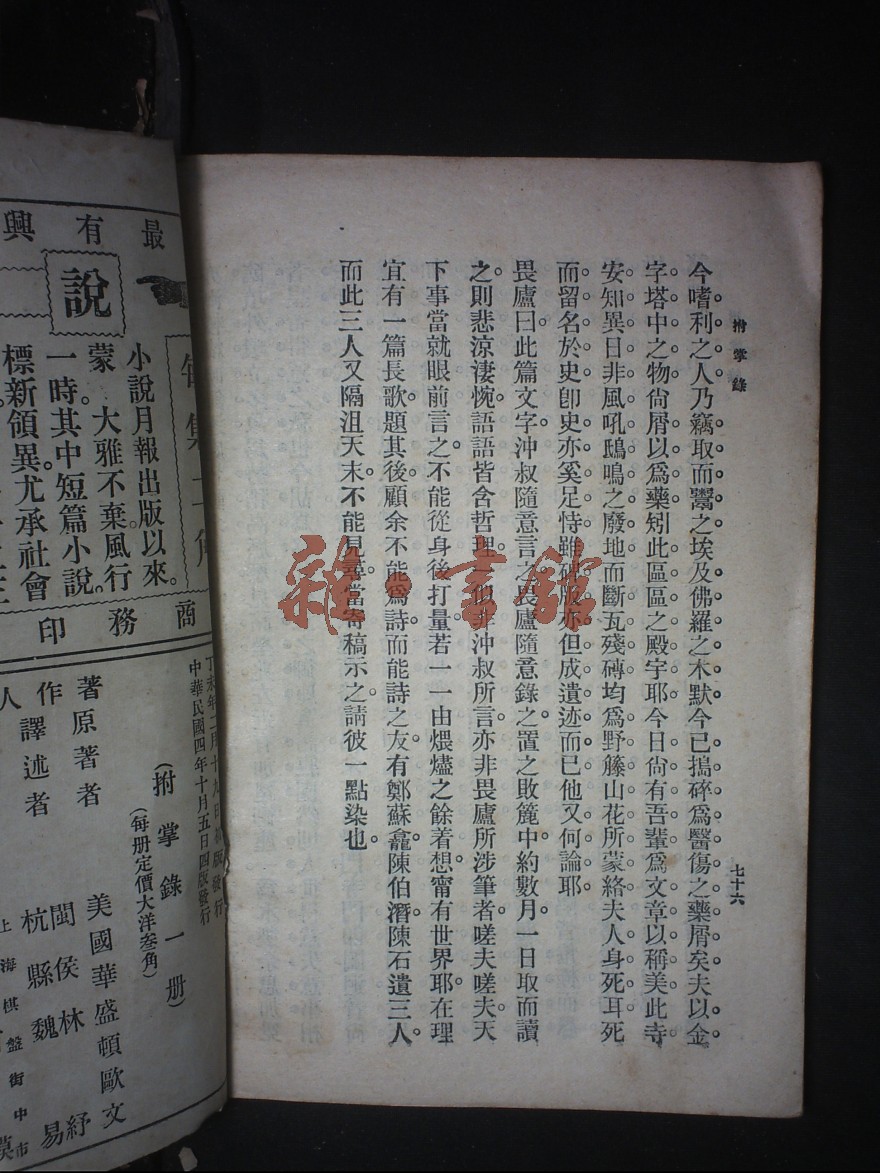 拊掌錄
七十六
今嗜利之人乃竊取而鬻之埃及佛羅之木默今已搗碎爲醫傷之藥屑矣夫以金
字塔中之物尙屑以爲藥矧此區區之殿宇耶今日尙有吾輩爲文章以稱美此寺
安知異日非風吼鴟鳴之廢地而斷瓦殘磚均爲野籐山花所蒙絡夫人身死耳死
而留名於史卽史亦奚足恃雖碑版亦但成遺迹而已他又何論耶
畏廬曰此篇文字沖叔隨意言之畏廬隨意錄之置之敗簏中約數月一日取而讀
之則悲涼淒惋語語皆含哲理似非沖叔所言亦非畏廬所涉筆者嗟夫嗟夫天
下事當就眼前言之不能從身後打量若一一由煨燼之餘着想甯有世界耶在理
宜有一篇長歌題其後顧余不能爲詩而能詩之友有鄭蘇龕陳伯潛陳石遺三人
而此三人又隔沮天末不能見尋當寄稿示之請彼一點染也
雜·書館
最有興
說
小說月報出版以來。
蒙 大雅不棄風行
一時。其中短篇小說。
標新領異。尤承社會
商務印
丁未年二月十九日初版發行
中華民國四年十月五日四版發行
(拊掌錄一册)
(每册定價大洋叁角)
著原著者 美國華盛頓歐文
作譯述者 閩侯林紓
人 杭縣魏易
上海棋盤街中市